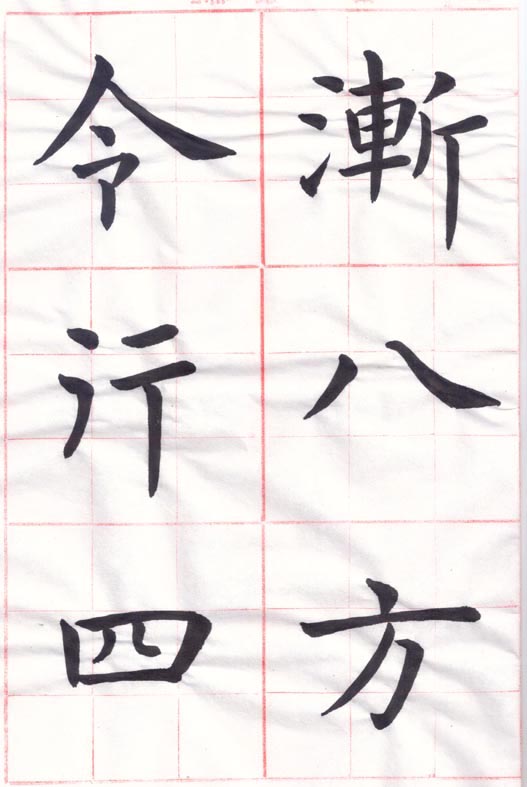 漸八方
令行四